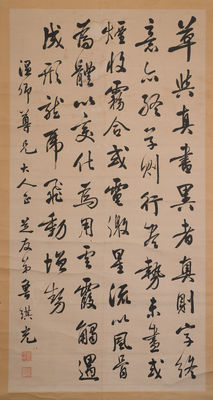 草與真書異者真則字終
意亦終草則行盡勢未盡或
煙收霧合或電激星流以風骨
為體以變化為用雲霞觸遇
成形龍虎飛動增勢
卿尊兄大人正 芝友弟魯琪光